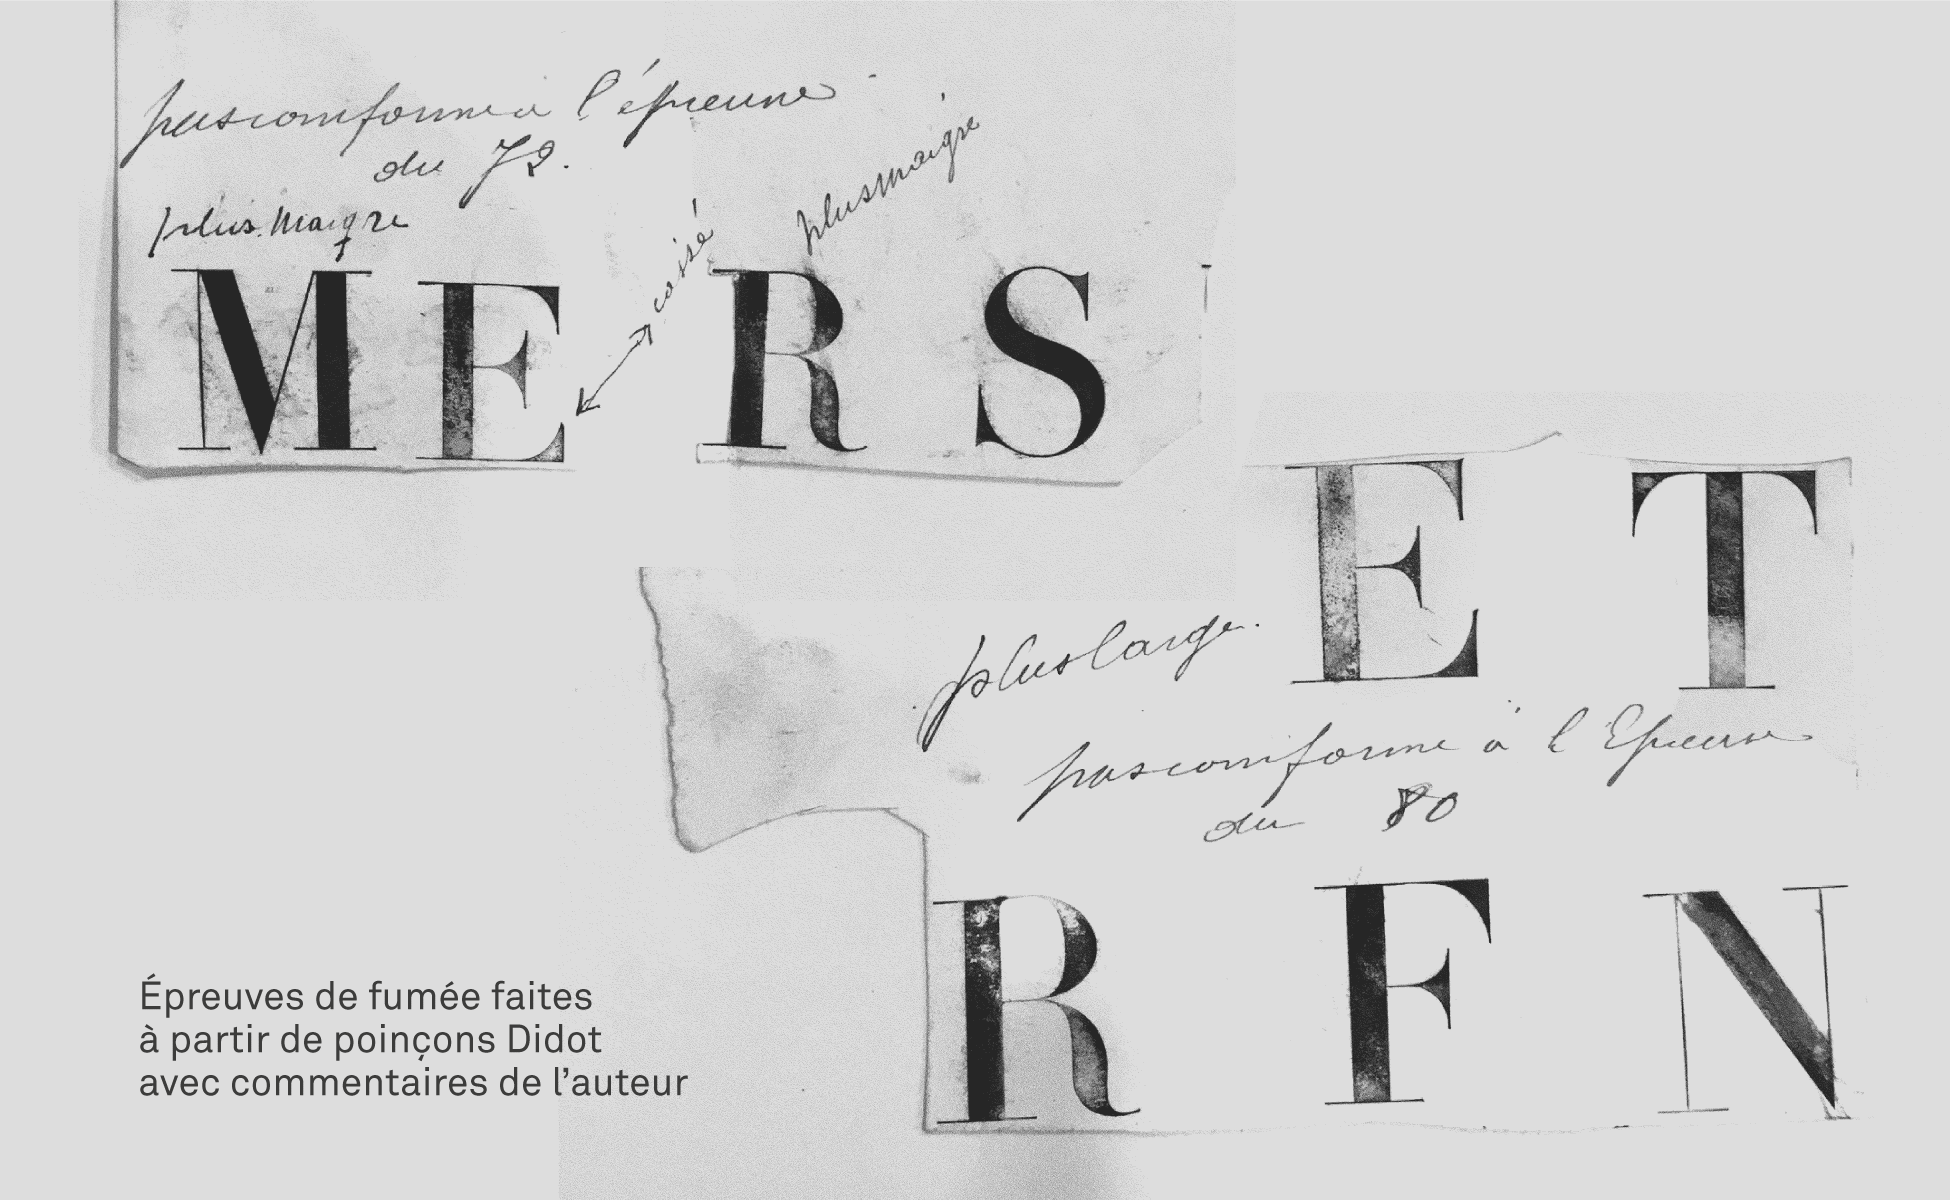 pas conforme à l'épreuve
du 72.
plus maigre
cassé
plus maigre
M E R S
E T
plus large.
pas conforme à l'Epreuve
du 80
R F N
Épreuves de fumée faites
à partir de poinçons Didot
avec commentaires de l’auteur